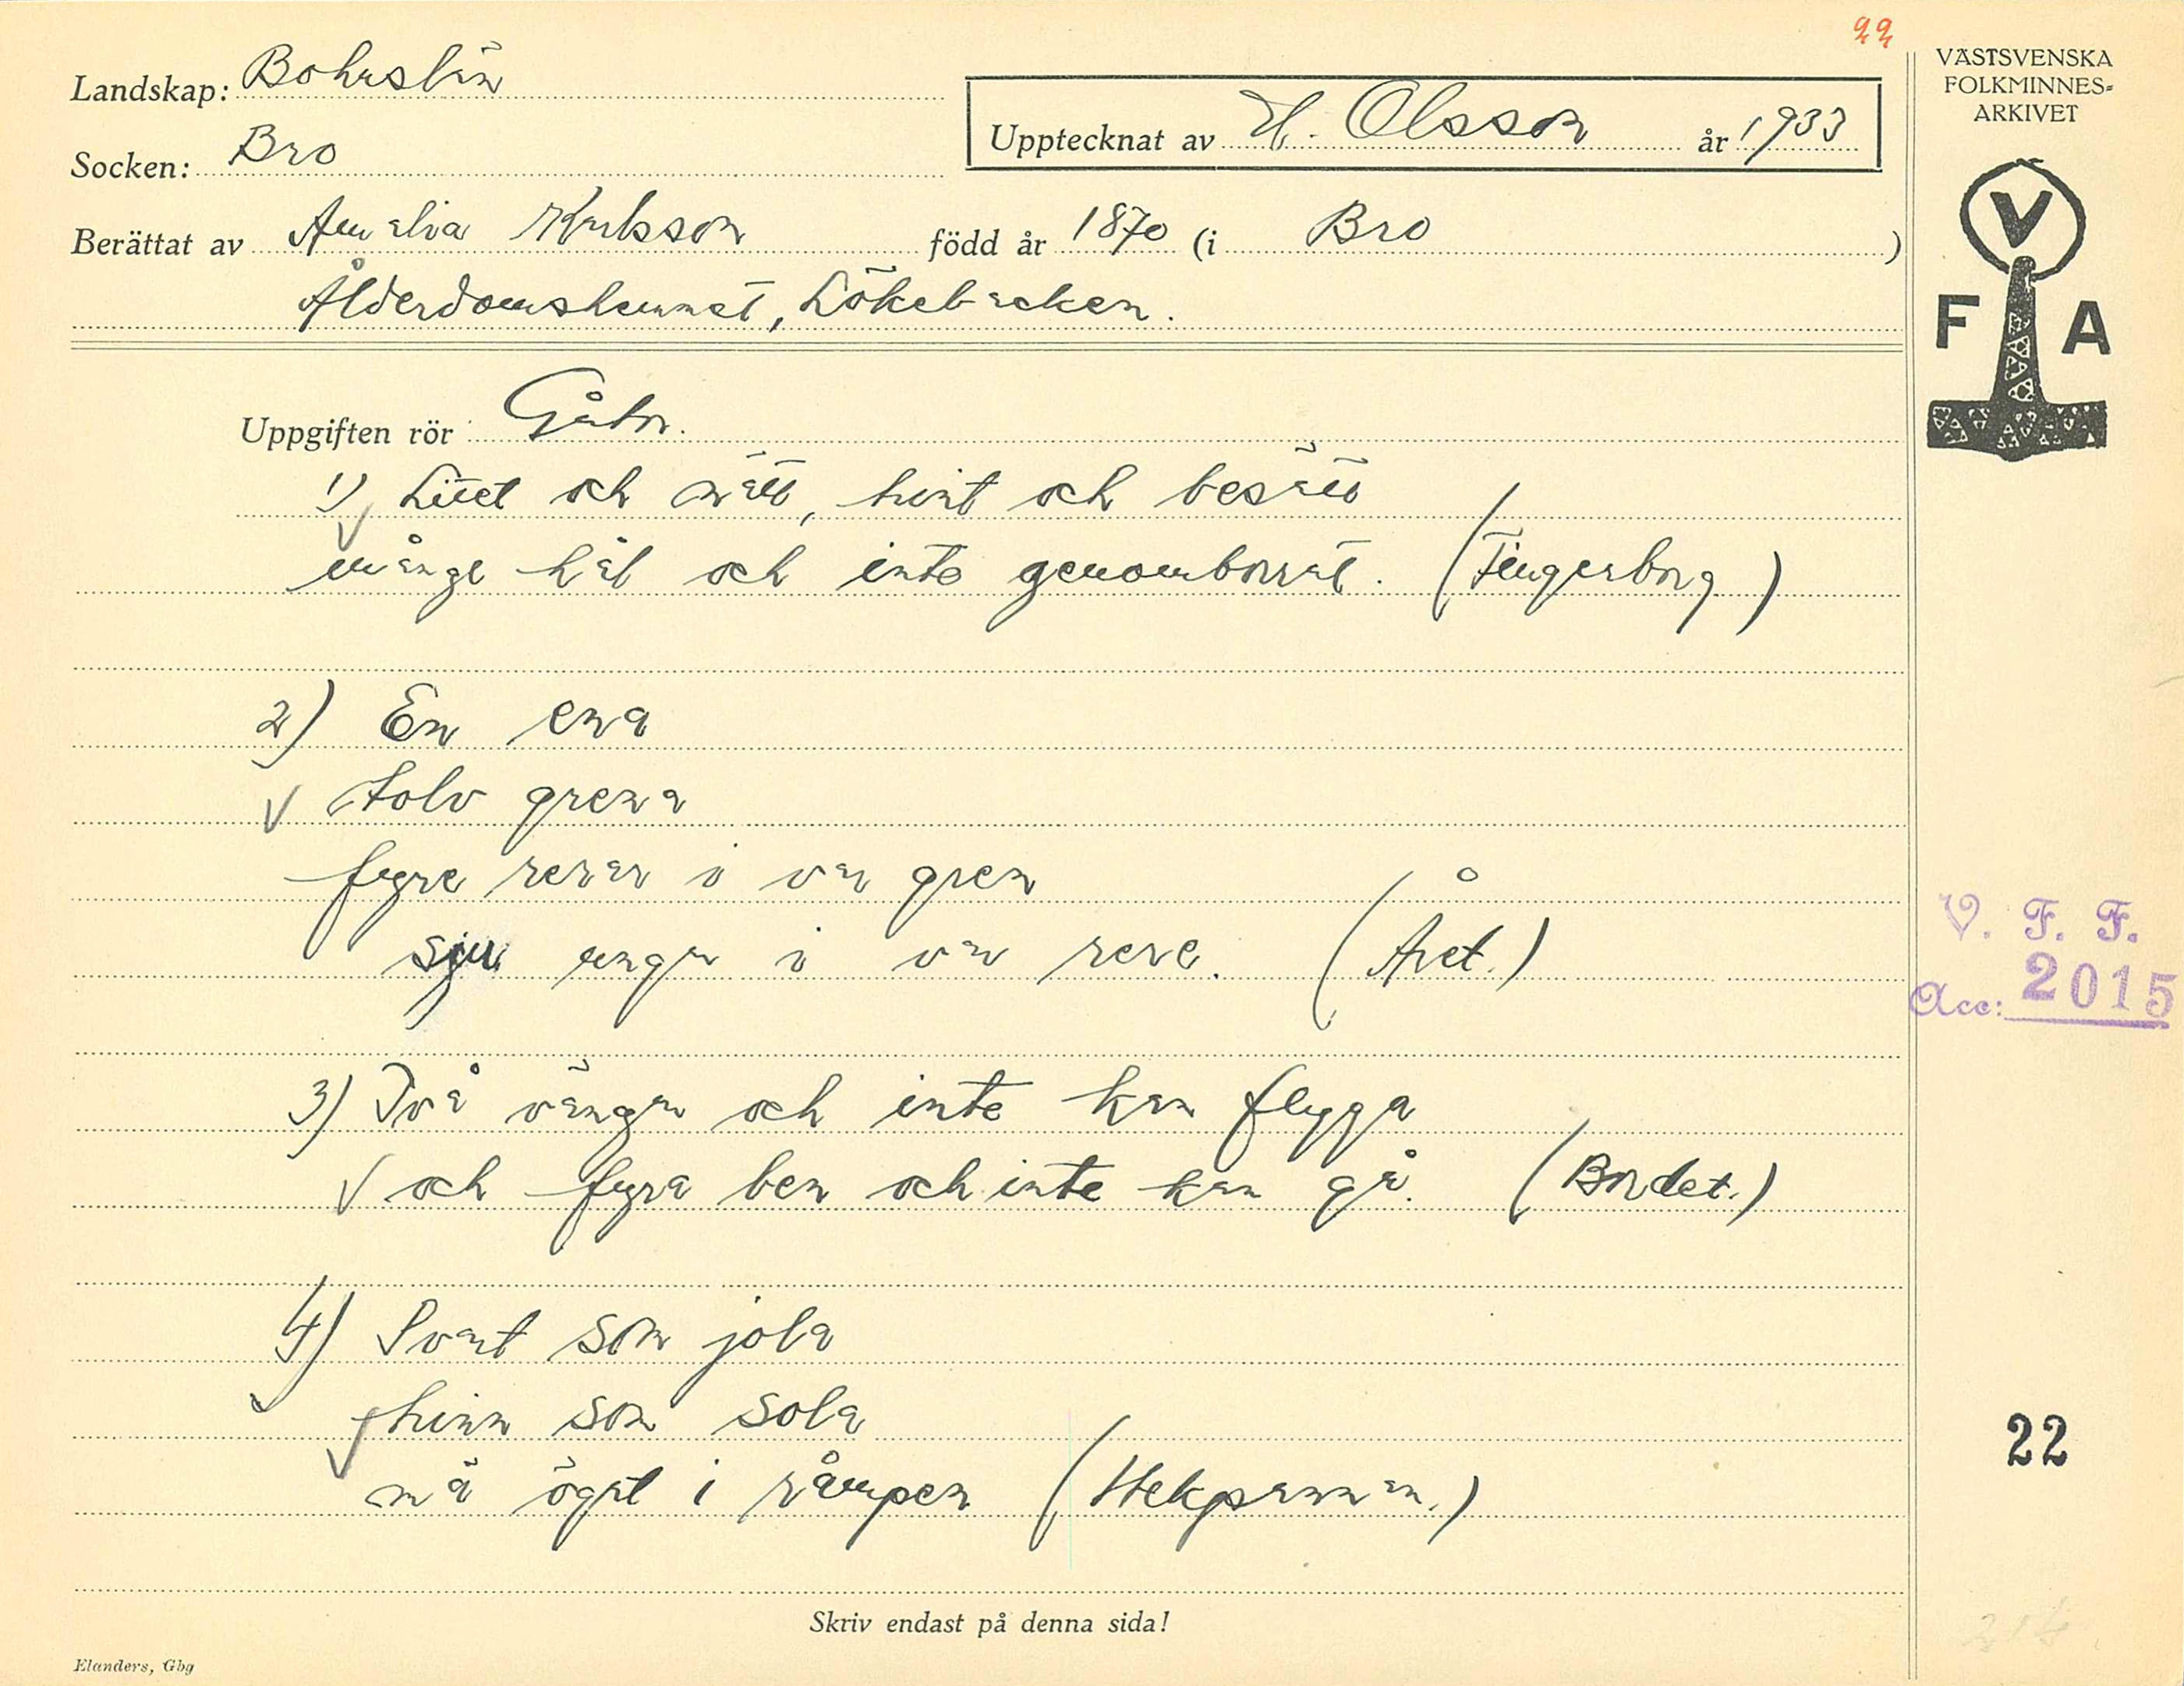 22
Landskap: Bohuslän
Socken: Bro
Upptecknat av H. Olsson år 1933
Berättat av Amalia Karlsson född år 1870 (i Bro)
Ålderdomshemmet, Lökebacken.
Uppgiften rör Gåtor.
1) Litet och nätt, runt och besatt
många hål och inte genomborrat. (Fingerborg)
2) En ena
tolv grena
fyre rerar i var gren
sju ungar i var rere. (Året.)
3) Två vängar och inte kan flyga
och fyra ben och inte kan gå. (Bordet.)
4) Svart som jola
hinn som sola
mä öget i råmpen (Stekpannan.)
Skriv endast på denna sida!
Elanders, Gbg
VÄSTSVENSKA
FOLKMINNES-
ARKIVET
V
F A
V. F. F.
Acc: 2015
22